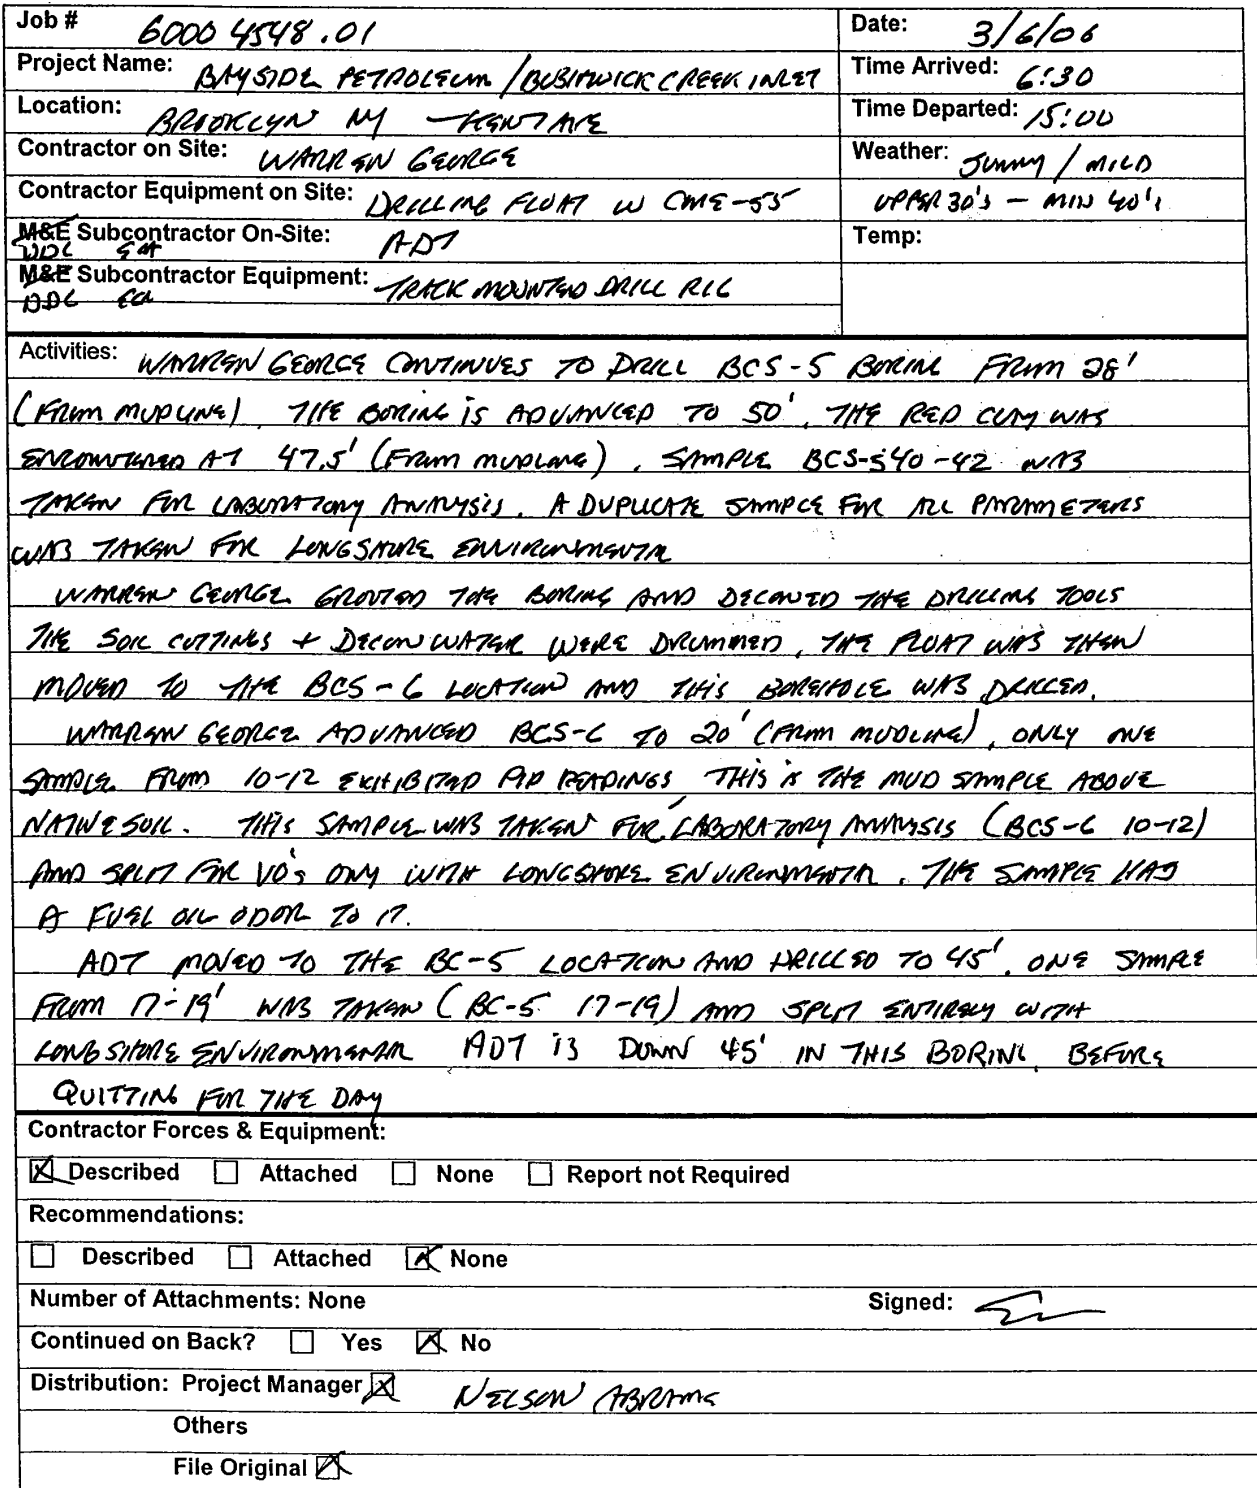 Job # 6000 4548.01
Date: 3/6/06
Project Name: BAYSIDE PETROLEUM / BUSHWICK CREEK INLET
Time Arrived: 6:30
Location: BROOKLYN NY - KENT AVE
Time Departed: 15:00
Contractor on Site: WARREN GEORGE
Weather: SUNNY / MILD
Contractor Equipment on Site: DRILLING FLOAT W CME-55
UPPER 30's - MID 40's
M&E Subcontractor On-Site: ADT
DDC
Temp:
M&E Subcontractor Equipment: TRACK MOUNTED DRILL RIG
DDC
Activities: WARREN GEORGE CONTINUES TO DRILL BCS-5 BORING FROM 28'
(FROM MUDLINE). THE BORING IS ADVANCED TO 50'. THE RED CLAY WAS
ENCOUNTERED AT 47.5' (FROM MUDLINE). SAMPLE BCS-5 40-42 WAS
TAKEN FOR LABORATORY ANALYSIS. A DUPLICATE SAMPLE FOR ALL PARAMETERS
WAS TAKEN FOR LONGSHORE ENVIRONMENTAL
WARREN GEORGE GROUTED THE BORING AND DECONED THE DRILLING TOOLS
THE SOIL CUTTINGS + DECON WATER WERE DRUMMED. THE FLOAT WAS THEN
MOVED TO THE BCS-6 LOCATION AND THIS BOREHOLE WAS DRILLED.
WARREN GEORGE ADVANCED BCS-6 TO 20' (FROM MUDLINE), ONLY ONE
SAMPLE FROM 10-12 EXHIBITED PID READINGS THIS IS THE MUD SAMPLE ABOVE
NATIVE SOIL. THIS SAMPLE WAS TAKEN FOR LABORATORY ANALYSIS (BCS-6 10-12)
AND SPLIT FOR VO's ONLY WITH LONGSHORE ENVIRONMENTAL. THE SAMPLE HAD
A FUEL OIL ODOR TO IT.
ADT MOVED TO THE BC-5 LOCATION AND DRILLED TO 45'. ONE SAMPLE
FROM 17-19' WAS TAKEN (BC-5 17-19) AND SPLIT ENTIRELY WITH
LONGSHORE ENVIRONMENTAL ADT IS DOWN 45' IN THIS BORING BEFORE
QUITTING FOR THE DAY
Contractor Forces & Equipment:
Described Attached None Report not Required
Recommendations:
Described Attached None
Number of Attachments: None
Signed:
Continued on Back? Yes No
Distribution: Project Manager NELSON ABRAMS
Others
File Original